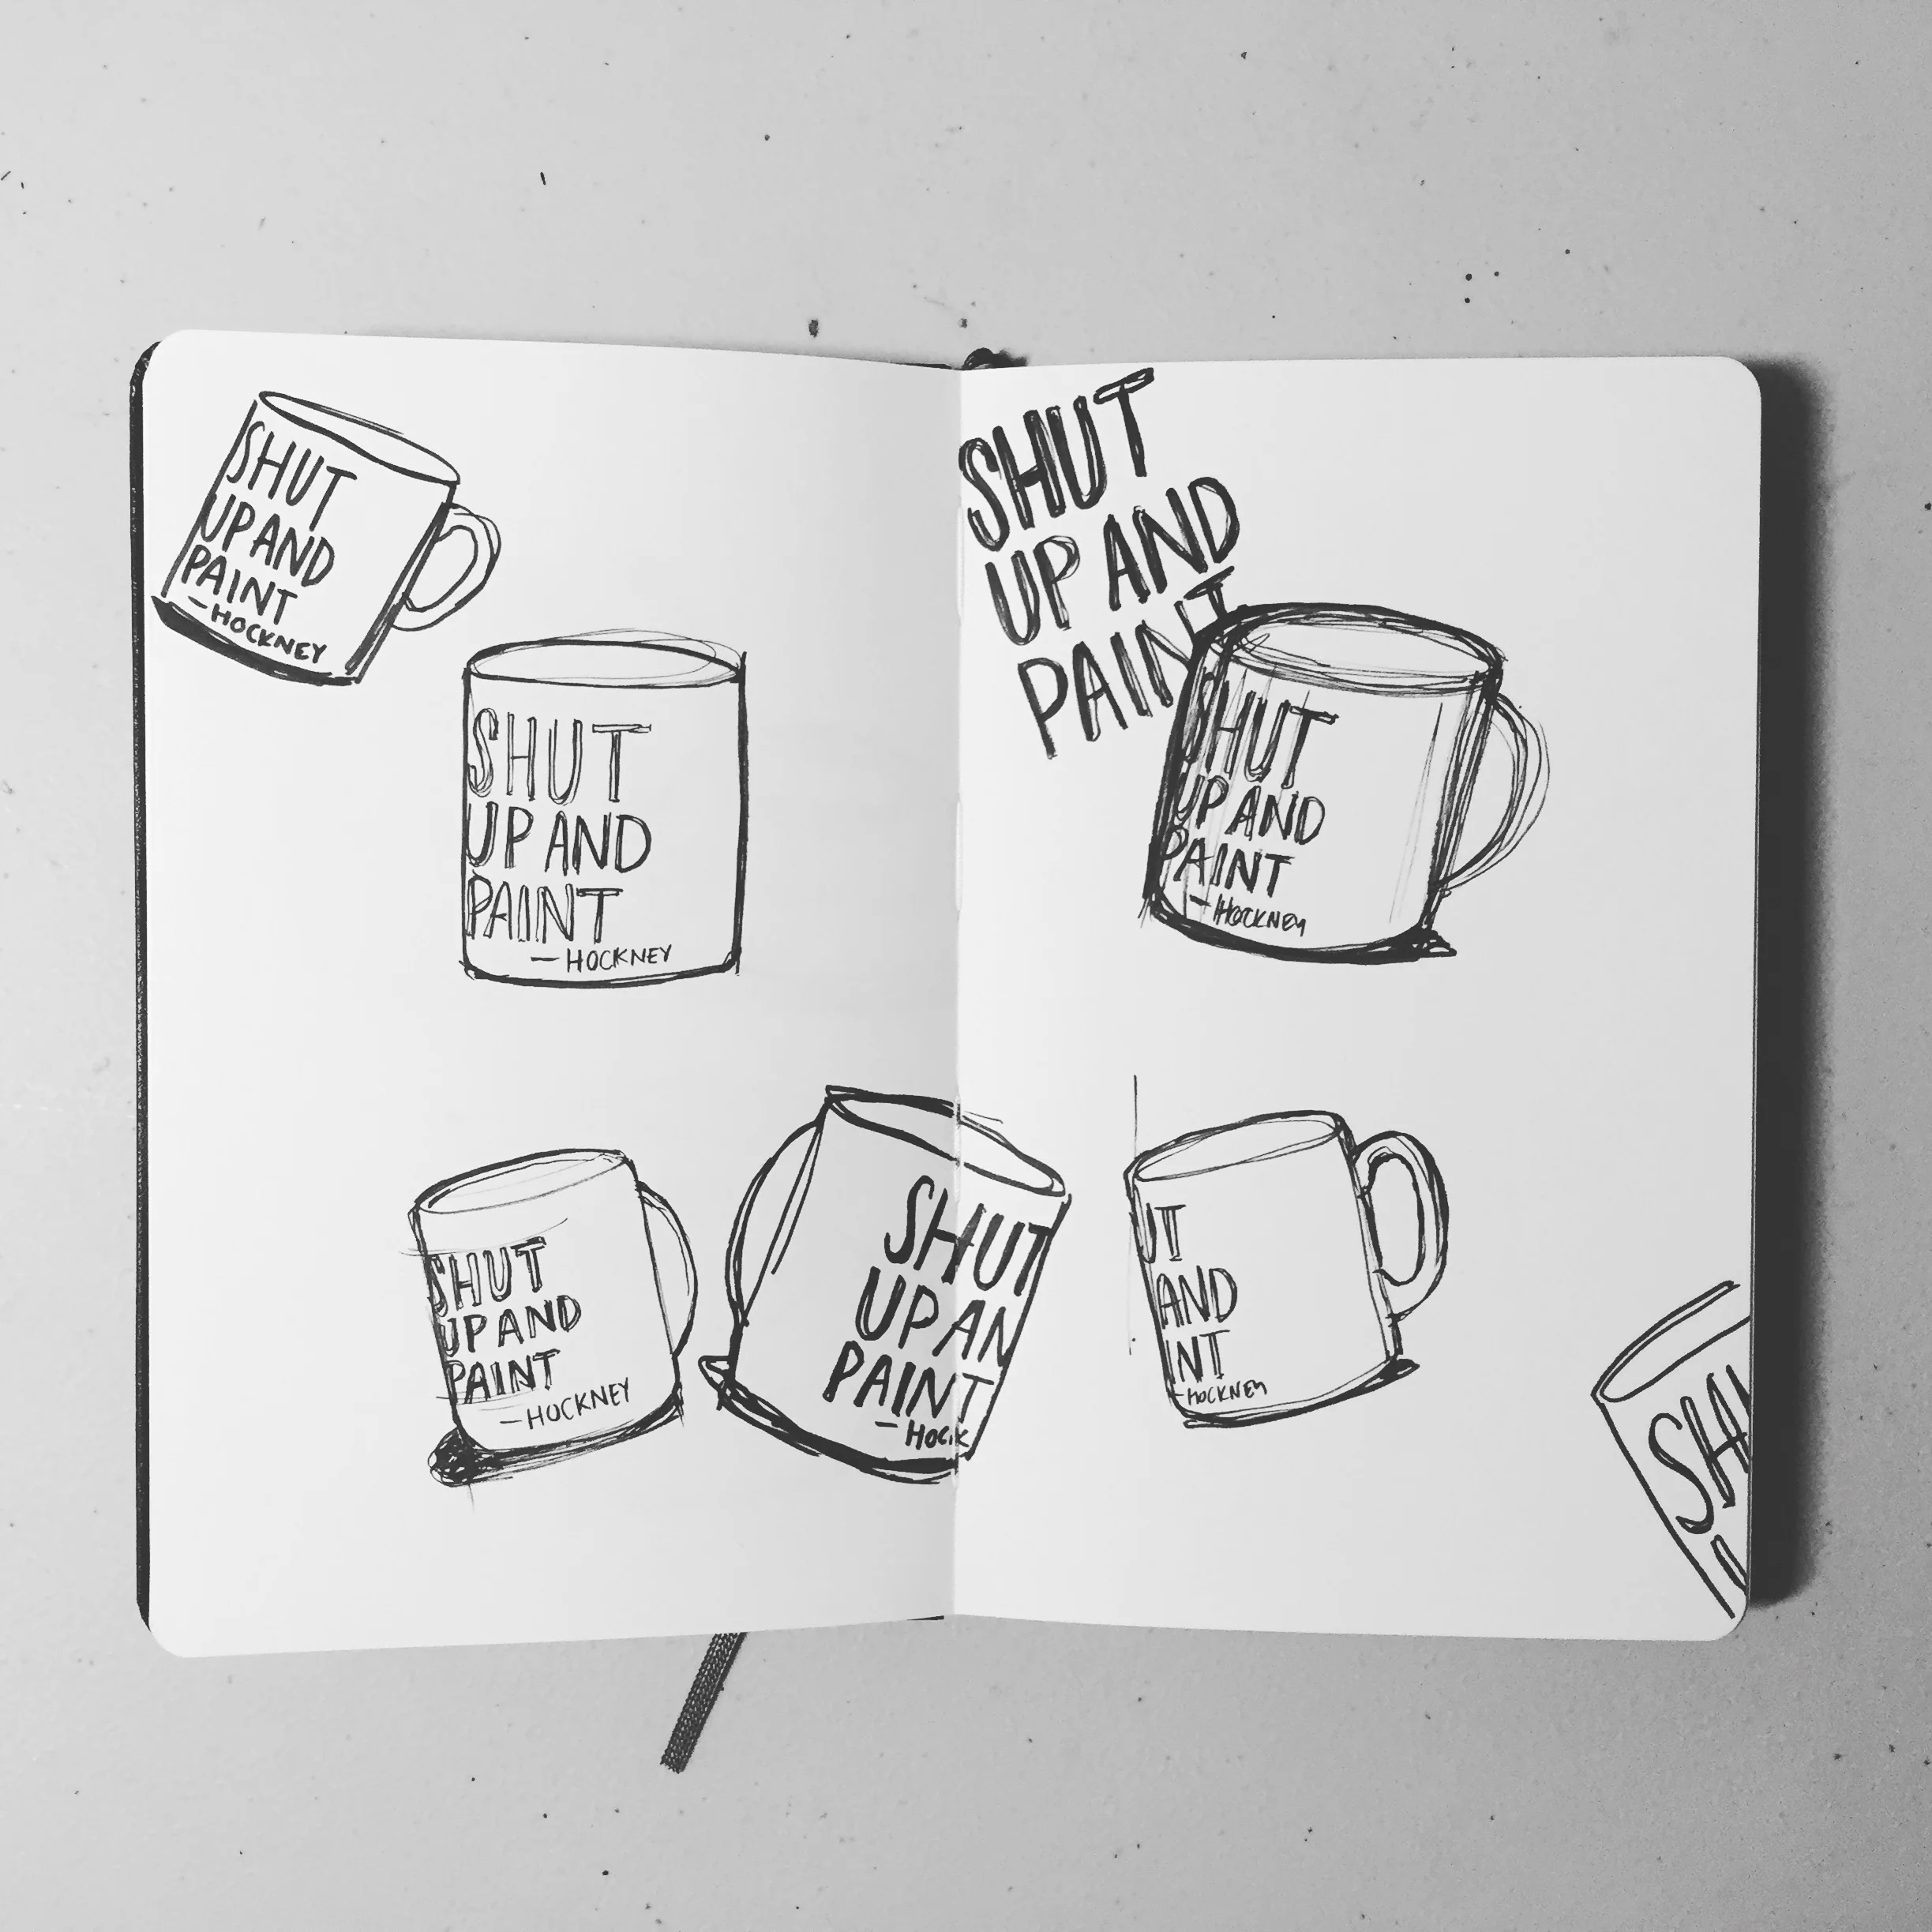 SHUT
UP AND
PAINT
—HOCKNEY
SHUT
UP AND
PAINT
—HOCKNEY
SHUT
UP AND
PAINT
SHUT
UP AND
PAINT
—HOCKNEY
SHUT
UP AND
PAINT
—HOCKNEY
SHUT
UP AN
PAINT
—HOCK
UT
AND
INT
-HOCKNEY
SH